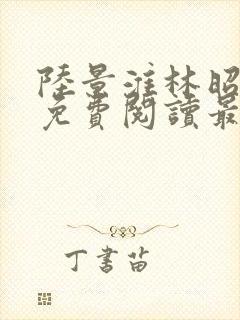 陸景淮林昭
免費閱讀最
丁書苗